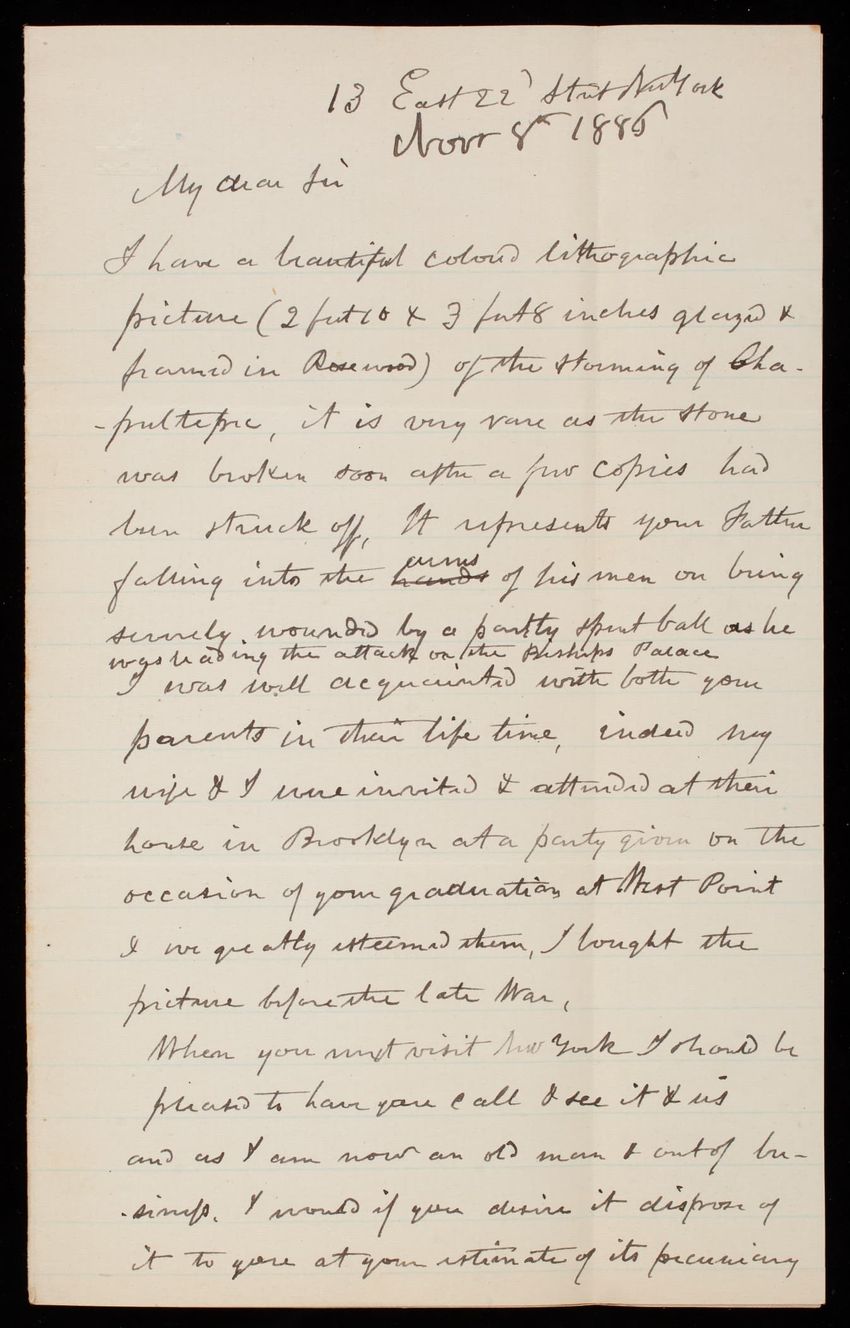 13 East 22d Street New York
Novr 8th 1886
My dear Sir
I have a beautiful colourd lithographic
picture (2 feet 10 & 3 feet 8 inches glazed &
framed in Rosewood) of the storming of Cha-
-pultepec, it is very rare as the stone
was broken soon after a few copies had
been struck off, It represents your Father
falling into the hands arms of his men on being
severely wounded by a partly spent ball as he
was leading the attack on the Bishops Palace
I was well acquainted with both your
parents in their life time, indeed my
wife & I were invited & attended at their
house in Brooklyn at a party given on the
occasion of your graduation at West Point
& we greatly esteemed them, I bought the
picture before the late War,
When you next visit New York I should be
pleased to have you call & see it & us
and as I am now an old man & out of bu-
-siness. I would if you desire it dispose of
it to you at your estimate of its pecuniary